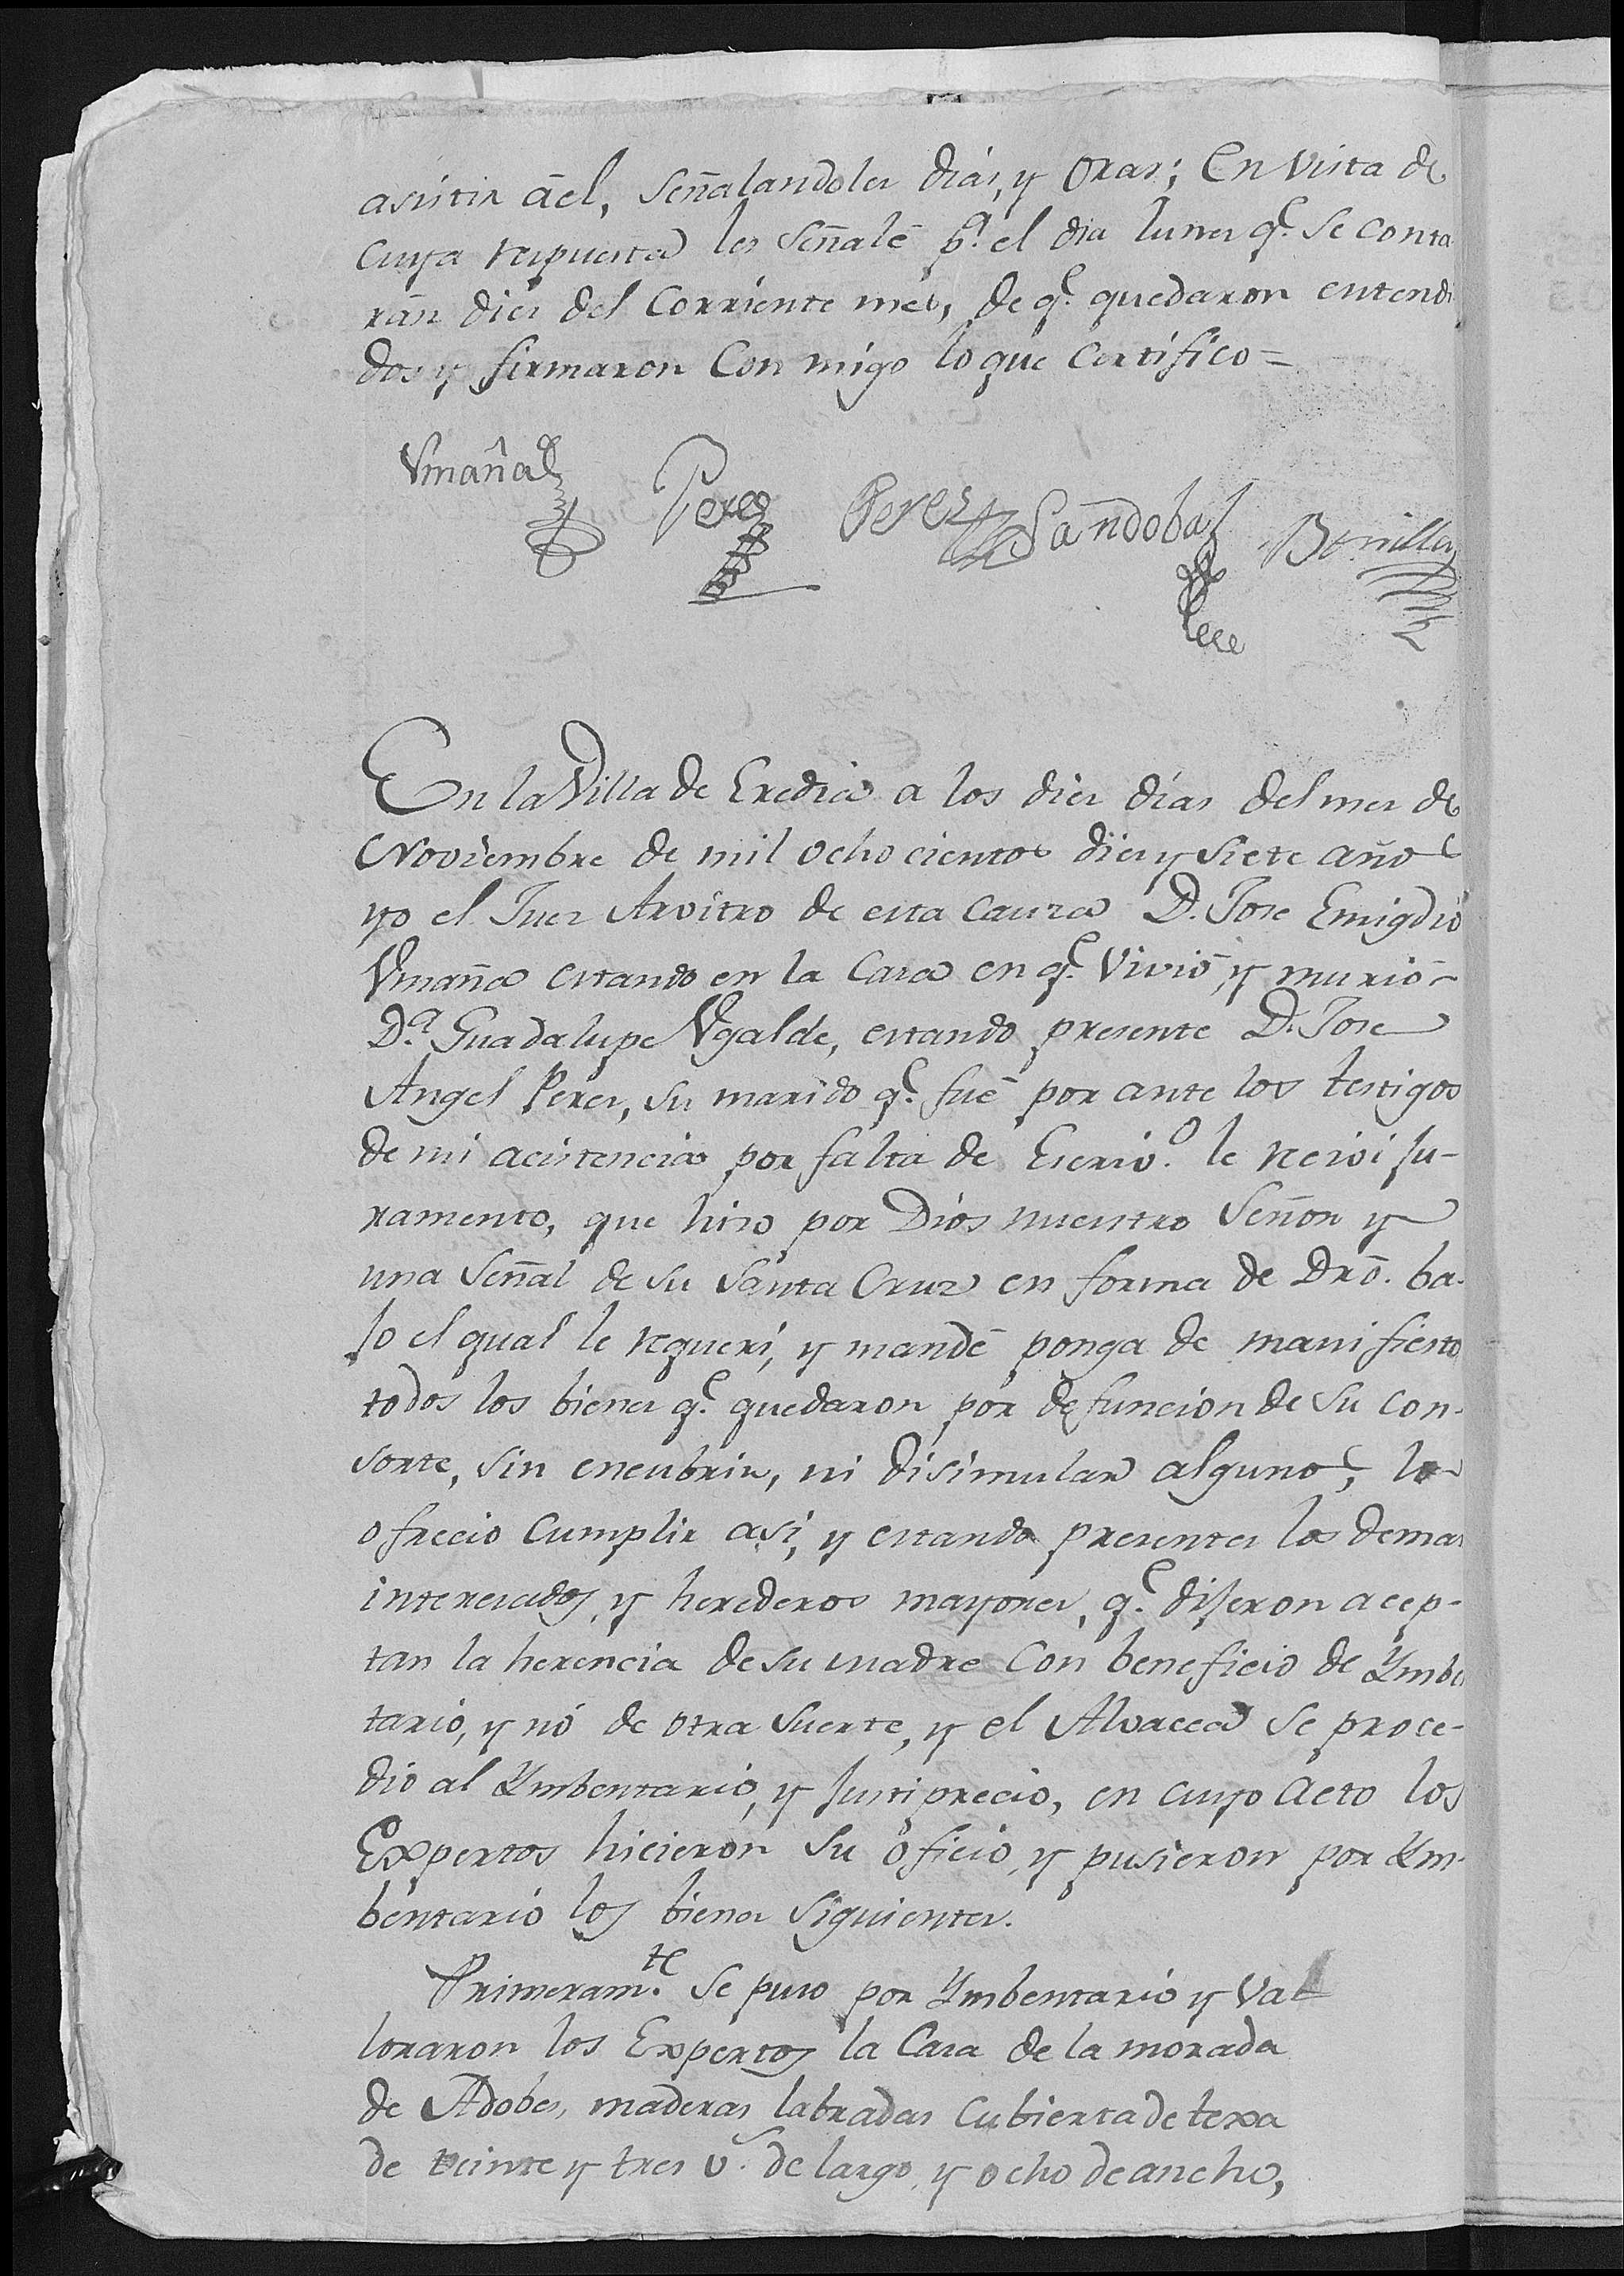 asistir âel, Señalandoles dias, y Oras; En Vista de
cuya respuesta les Señalé pª. el dia lunes qᵉ. Se conta
rán dies del Corriente mes, de qᵉ. quedaron entendi
dos y firmaron Con migo lo que Certifico =
Vmaña Perez Perez Sañdobal Bonilla
En la Villa de Eredia a los dies dias del mes de
Noviembre de mil ocho cientos dies y siete años
yo el Jues Arvitro de esta causa D. Jose Emigdio
Vmaña estando en la Casa en qᵉ. Vivió y murió
Dª. Guadalupe Vgalde, estando presente D. Jose
Angel Peres, su marido qᵉ. fué por ante los testigos
de mi acistencia por falta de Escrivº. le recivi ju-
ramento, que hiso por Dios nuestro Señor y
una Señal de su Santa Cruz en forma de Drõ. ba-
jo el qual le requeri, y mandé ponga de manifiesto
todos los bienes qᵉ. quedaron por defuncion de su con-
sorte, sin encubrir, ni disimular algunos, lo
ofrecio Cumplir asi, y estando presentes los demas
interesados, y herederos mayores, qᵉ. dijeron acep-
tan la herencia de su madre Con beneficio de Ymben
tario, y nó de otra Suerte, y el Alvacea Se proce-
dio al Ymbentario, y Justiprecio, en cuyo acto los
Expertos hicieron Su oficio, y pusieron por Ym-
bentario los bienes Siguientes.
Primeramᵗᵉ. Se puso por Ymbentario y Va
loraron los Expertos la Casa de la morada
de Adobes, maderas labradas Cubierta de texa
de veinte y tres vˢ. de largo, y ocho de ancho,